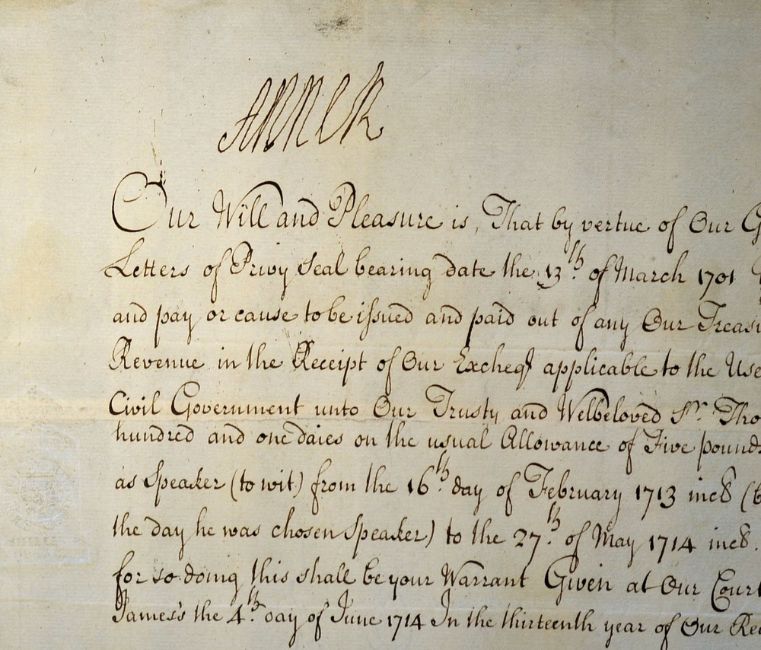 ANNE R
Our Will and Pleasure is, That by vertue of Our G
Letters of Privy Seal bearing date the 13th. of March 1701
and pay or cause to be issued and paid out of any Our Treasu
Revenue in the Receipt of Our Excheqr applicable to the Use
Civil Government unto Our Trusty and Welbeloved Sr. Tho
hundred and one daies on the usual Allowance of Five pounds
as Speaker (to wit) from the 16th day of February 1713 incl (
the day he was chosen Speaker) to the 27th. of May 1714 incl.
for so doing this shall be your Warrant Given at Our Court
James's the 4th. day of June 1714 In the thirteenth year of Our Re